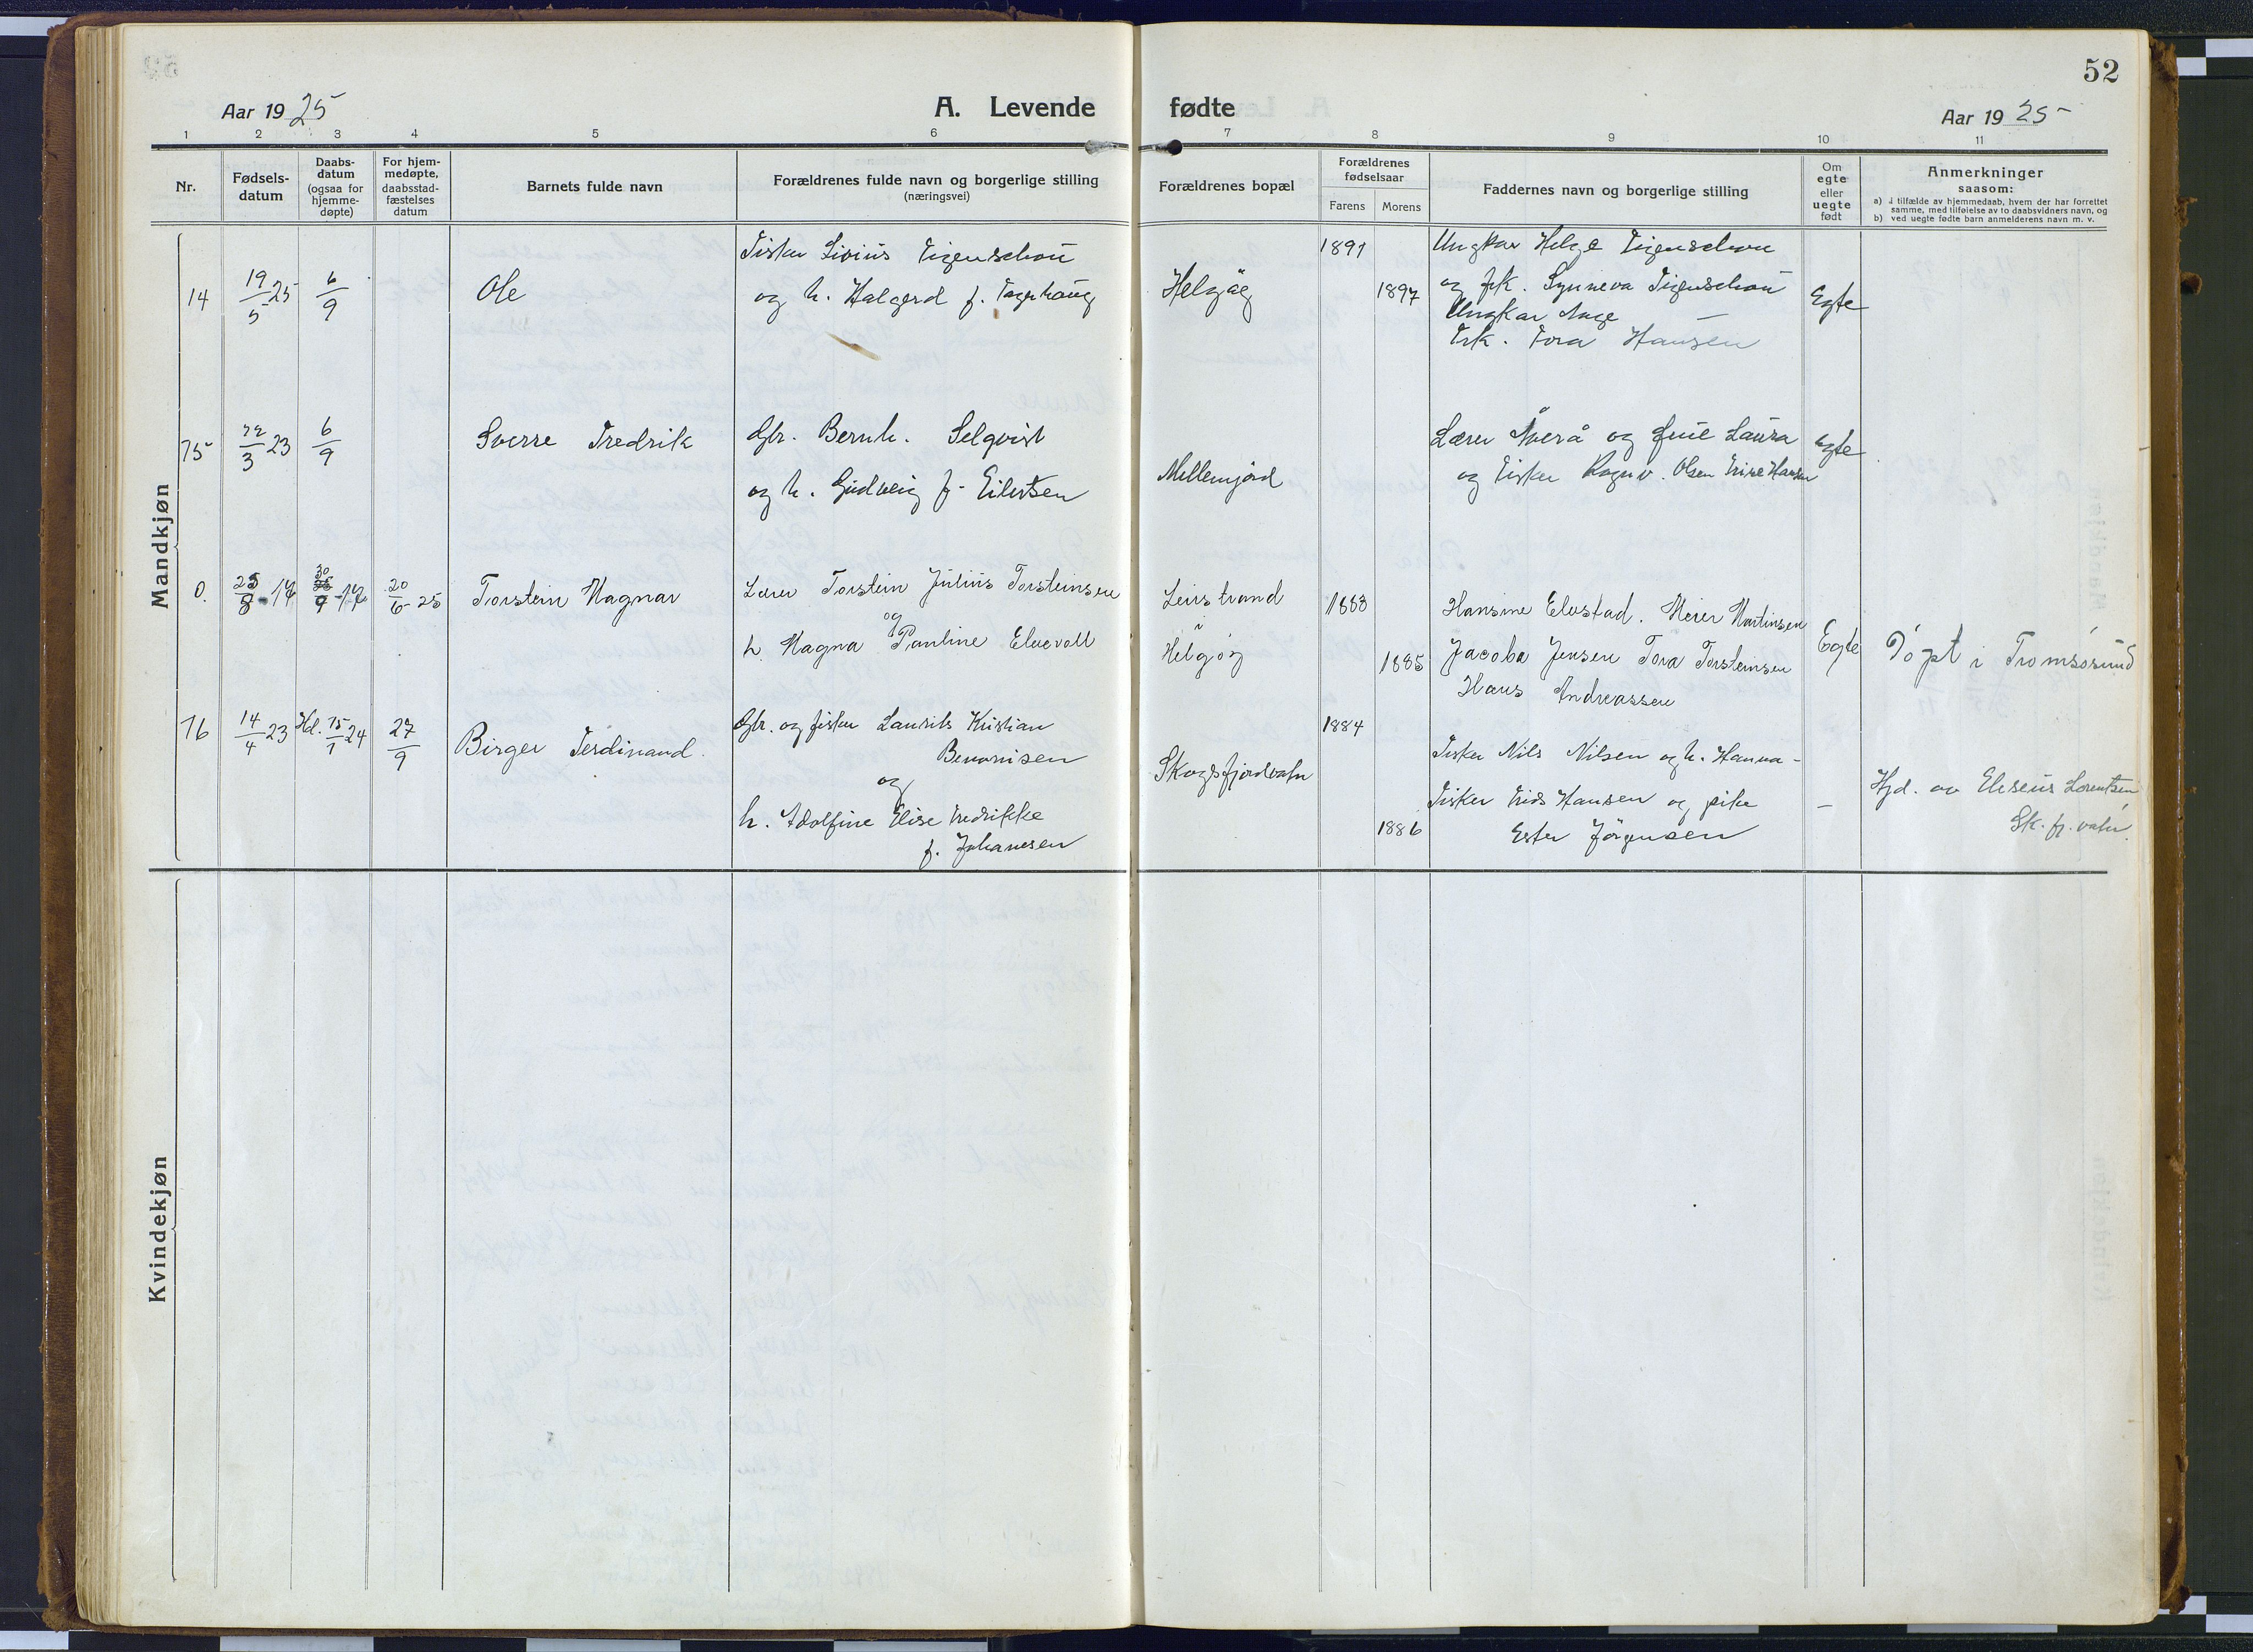 52
Aar 1925
A. Levende fødte
Aar 1925
1 2 3 4 5 6 7 8 9 10 11
Nr.
Fødsels-
datum
Daabs-
datum
(ogsaa for
hjemme-
døpte)
For hjem-
medøpte,
daabsstad-
fæstelses
datum
Barnets fulde navn
Forældrenes fulde navn og borgerlige stilling
(næringsvei)
Forældrenes bopæl
Forældrenes
fødselsaar
Farens Morens
Faddernes navn og borgerlige stilling
Om
egte
eller
uegte
født
Anmerkninger
saasom:
a) i tilfælde av hjemmedaab, hvem der har forrettet
samme, med tilføielse av to daabsvidners navn, og
b) ved uegte fødte barn anmelderens navn m. v.
Mandkjøn
14 19/5 25 6/9 Ole
Fisker Sivius Figenschou
og h. Halgerd f.
Helgøy
1891
1897
Ungkar Helge Figenschou
og frk. Synneva Figenschou
Ungkar Aage
Frk. Tora Hansen
Egte
15 22/3 23 6/9 Sverre Fredrik
Gbr. Bernh. Selqvist
og h. Gudveig f. Eilertsen
Mellemjord
Lærer og Laura
og fisker Ragnv. Olsen Hansen
egte
0. 25/8 - 14 30/9 - 14 20/6 - 25 Torstein Magnar
Lærer Torstein Julius Torsteinsen
og
h. Magna Pauline Elvevoll
Leirstrand
i
Helgøy
1883
1885
Hansine Elvestad. Meier Martinsen
Jacoba Jensen Tora Torsteinsen
Hans Andreassen
Egte
Døpt i Tromsøsund
16 14/4 23 Hd. 15/1 24 27/9 Birger Ferdinand.
Gbr. og fisker Laurits Kristian
Benonisen
og
h. Adolfine Elise Fredrikke
f. Johansen
Skogsfjordvatn
1884
1886
Fisker Nils Nilsen og h. Hanna -
Fisker Hansen og pike
Ester Jørgensen
-
Hjd. av Eliseus Lorentsen
Sk. fj. vatn.
Kvindekjøn